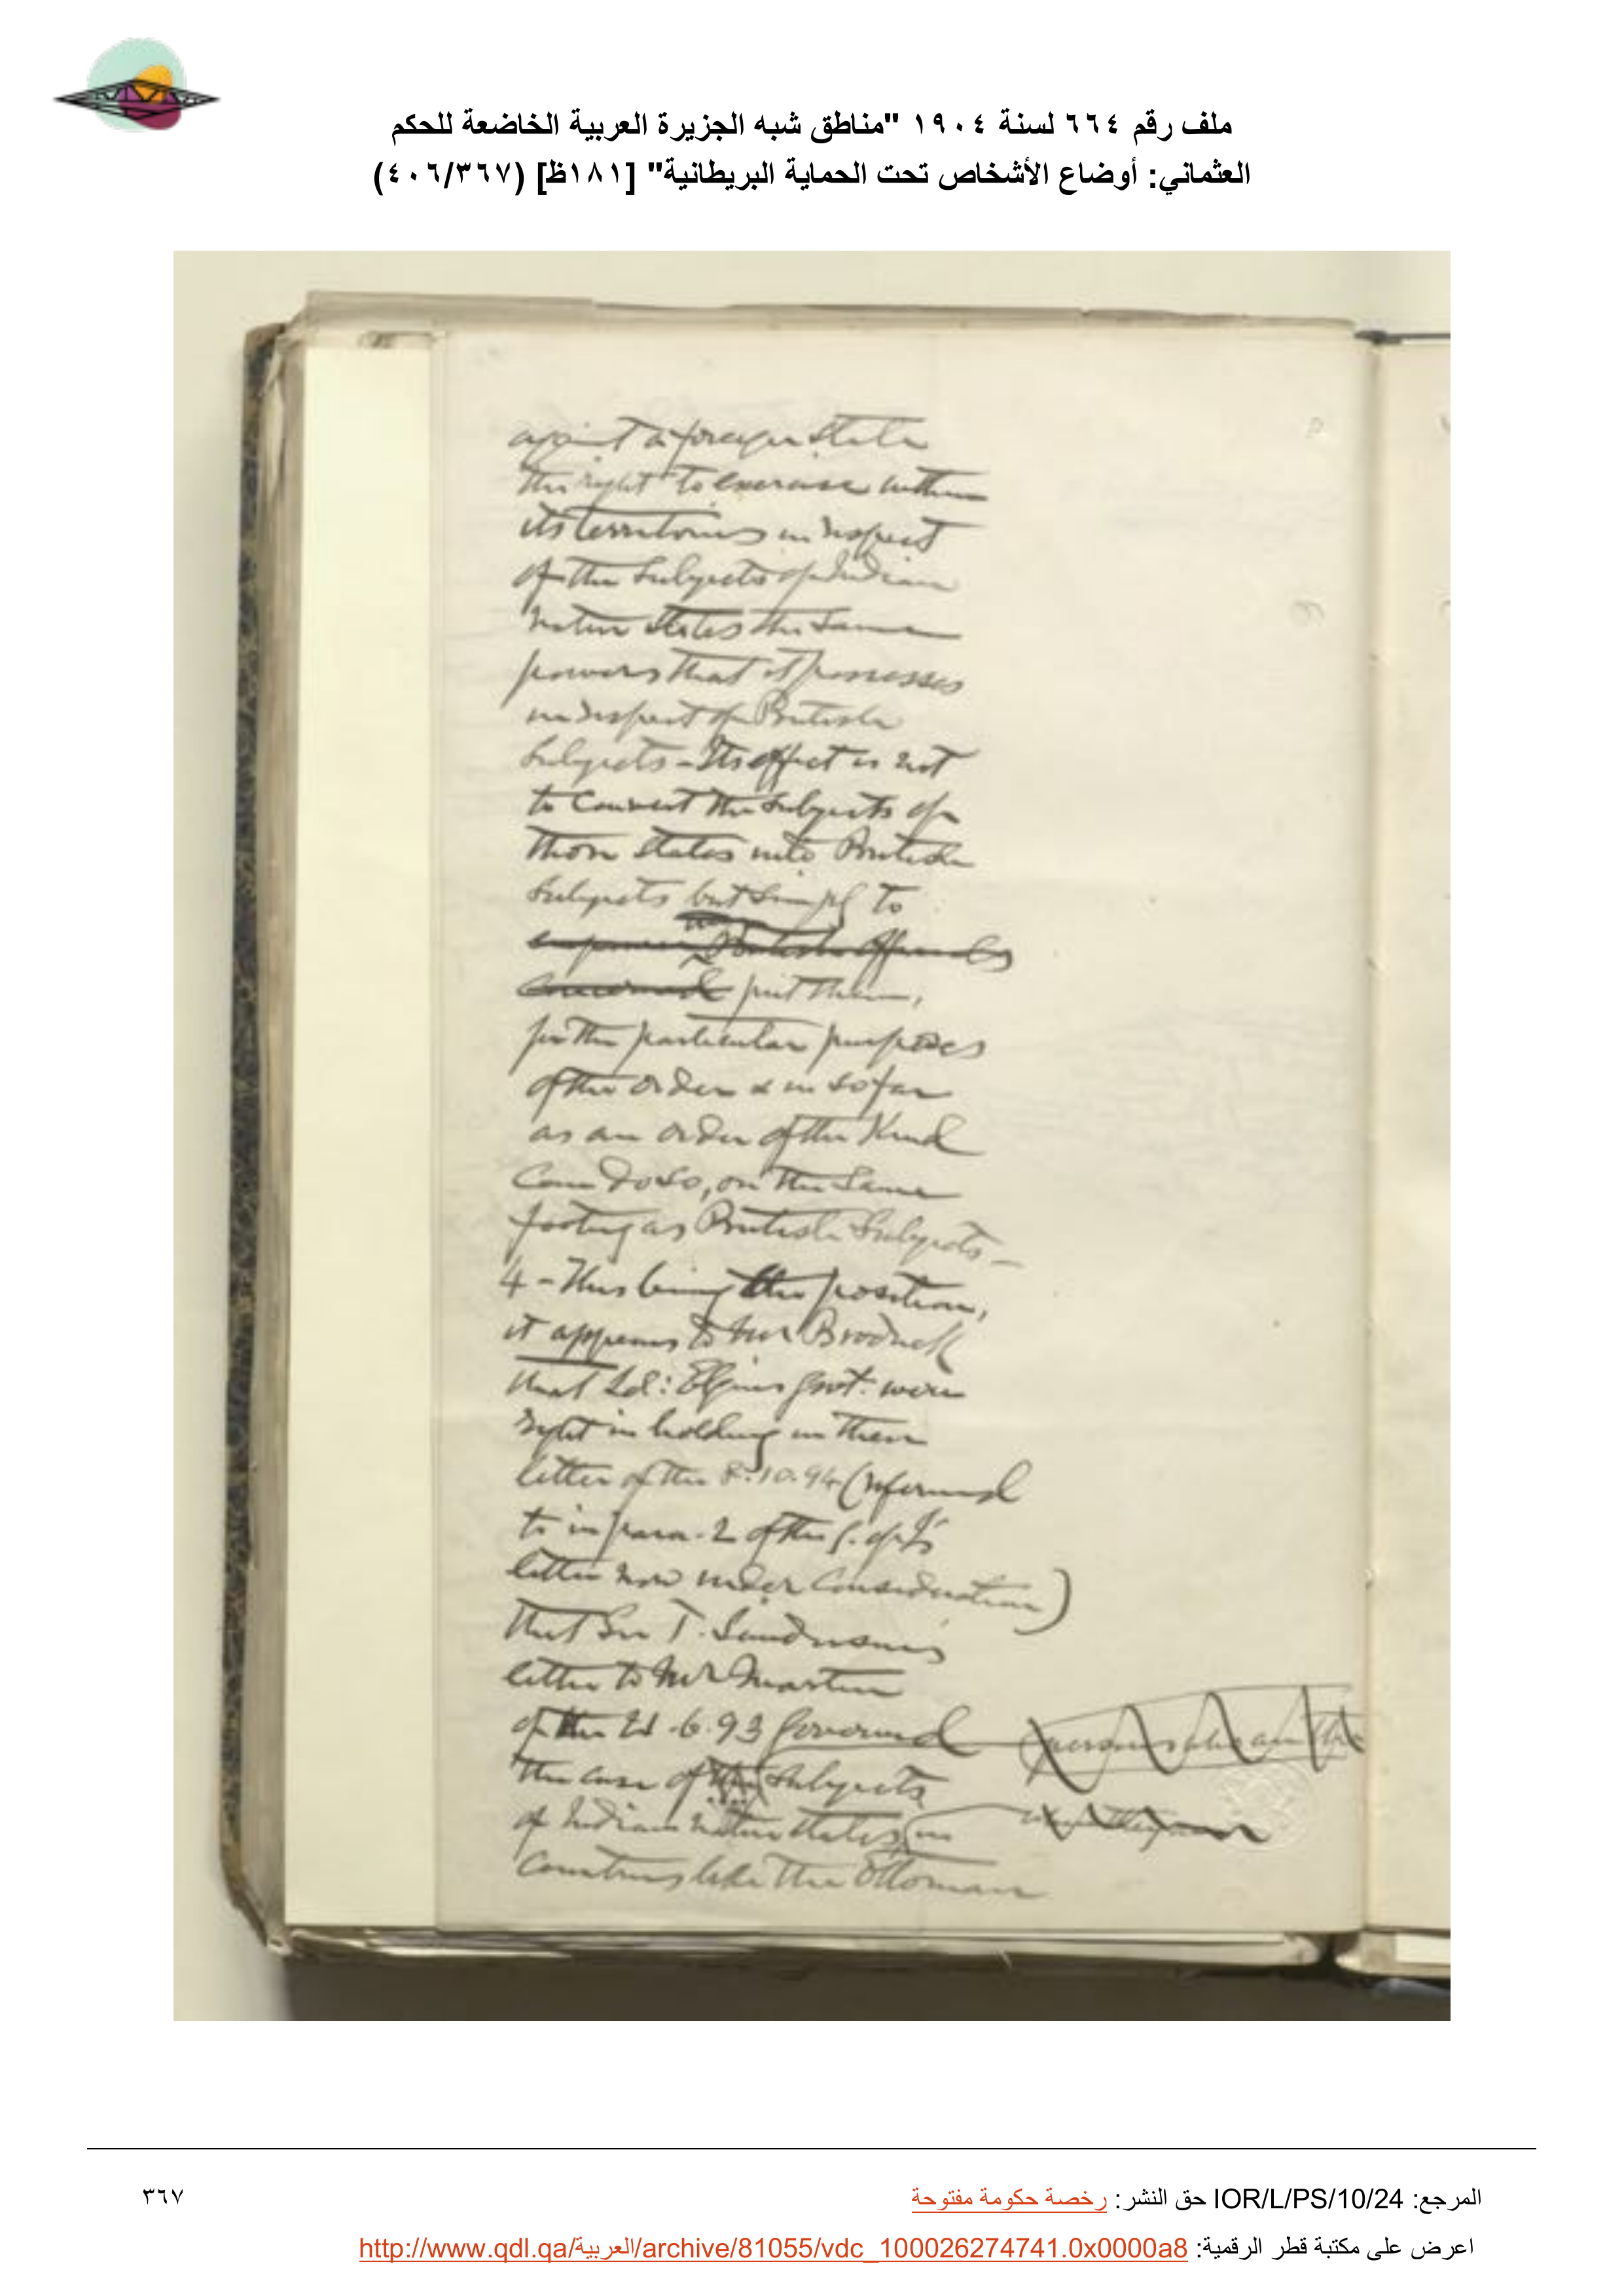 ملف رقم ٦٦٤ لسنة ١٩٠٤ "مناطق شبه الجزيرة العربية الخاضعة للحكم
العثماني: أوضاع الأشخاص تحت الحماية البريطانية" [١٨١ظ] (٤٠٦/٣٦٧)
against a foreign state
the right to exercise within
its territories in respect
of the subjects of Indian
native states the same
powers that it possesses
in respect of British
subjects - Its effect is not
to convert the subjects of
those states into British
subjects but simply to
British officials
put them,
for the particular purposes
of the order & in so far
as an order of the kind
can do so, on the same
footing as British subjects -
4 - This being the position,
it appears to Mr Brodrick
that Ld: Elgin's Govt. were
right in holding in their
letter of the 8.10.94 (referred
to in para. 2 of the G. of I's
letter now under consideration)
that Sir T. Sanderson's
letter to Mr Martin
of the -6.93 governed
the case of subjects
of Indian native states, in
countries like the Ottoman
المرجع: IOR/L/PS/10/24 حق النشر: رخصة حكومة مفتوحة
٣٦٧
اعرض على مكتبة قطر الرقمية: http://www.qdl.qa/العربية/archive/81055/vdc_100026274741.0x0000a8